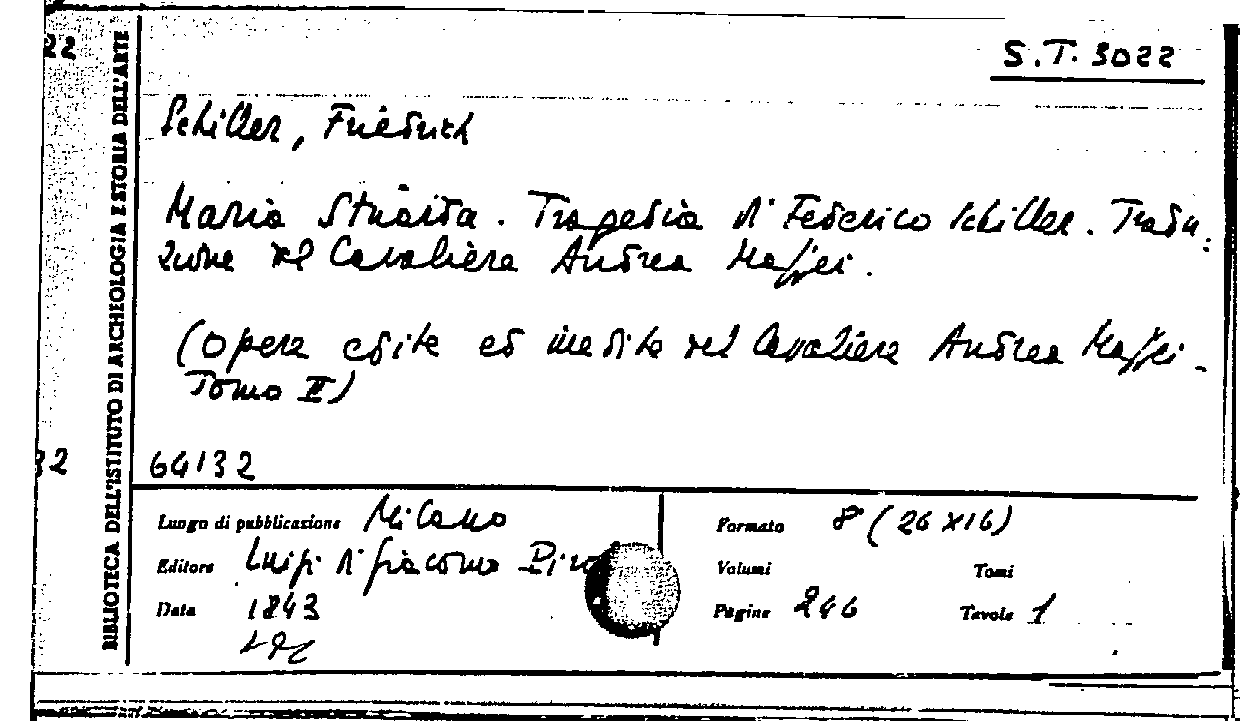 22
S.T. 3022
BIBLIOTECA DELL'ISTITUTO DI ARCHEOLOGIA E STORIA DELL'ARTE
Schiller, Friedrich
Maria Stuarda. Tragedia di Federico Schiller. Tradu:
zione del Cavaliere Andrea Maffei.
(Opere edite ed inedite del Cavaliere Andrea Maffei -
Tomo II)
32
64132
Luogo di pubblicazione Milano
Editore Luigi di Giacomo
Data 1843
Formato 8° (26x16)
Volumi Tomi
Pagine 246 Tavole 1